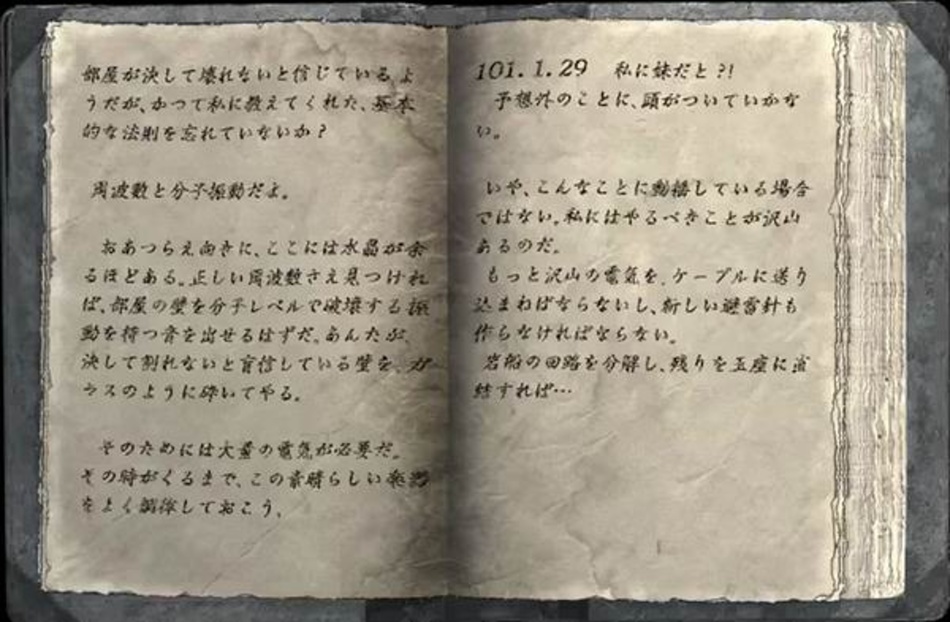 部屋が決して壊れないと信じているよ
うだが、かつて私に教えてくれた、基本
的な法則を忘れていないか?
周波数と分子振動だよ。
おあつらえ向きに、ここには水晶が余
るほどある。正しい周波数さえ見つけれ
ば、部屋の壁を分子レベルで破壊する振
動を持つ音を出せるはずだ。あんたが、
決して割れないと盲信している壁を、ガ
ラスのように砕いてやる。
そのためには大量の電気が必要だ。
その時がくるまで、この素晴らしい楽器
をよく調律しておこう。
101.1.29 私に妹だと?!
予想外のことに、頭がついていかな
い。
いや、こんなことに動揺している場合
ではない。私にはやるべきことが沢山
あるのだ。
もっと沢山の電気を、ケーブルに送り
込まねばならないし、新しい避雷針も
作らなければならない。
岩船の回路を分解し、残りを玉座に直
結すれば…